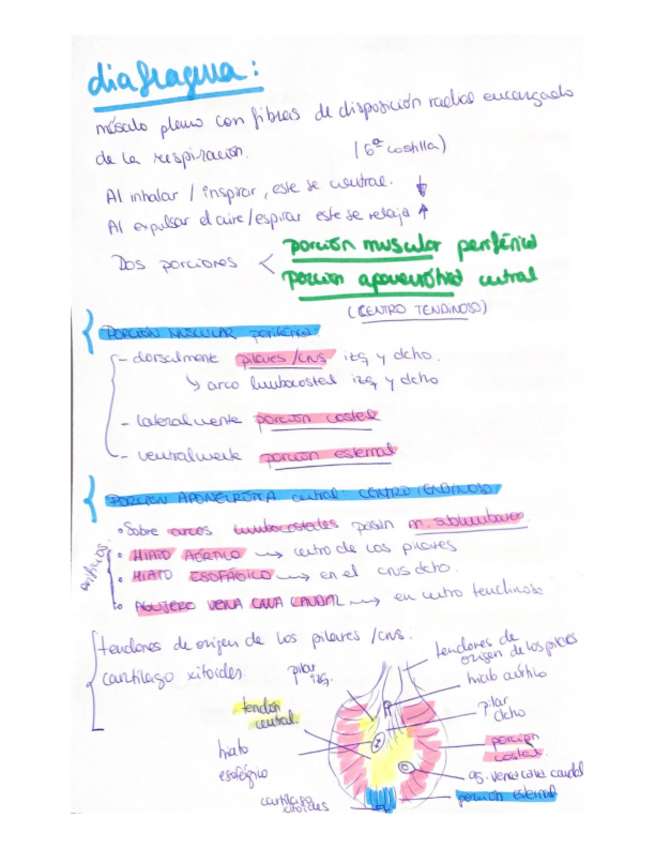 diafragma:
músculo plano con fibras de disposición radial encargado
de la respiración. (6ª costilla)
Al inhalar / inspirar, este se contrae. ↓
Al expulsar el aire/espirar este se relaja ↑
Dos porciones < porción muscular periférica
porción aponeurótica central
(CENTRO TENDINOSO)
{ PORCIÓN MUSCULAR periférica:
- dorsalmente pilares/crus izq y dcho.
↳ arco lumbocostal izq y dcho
- lateralmente porción costal
- ventralmente porción esternal
{ PORCIÓN APONEURÓTICA central: CENTRO TENDINOSO
• Sobre arcos lumbocostales pasan m. sublumbares.
orificios:
• HIATO AÓRTICO → entro de los pilares
• HIATO ESOFÁGICO → en el crus dcho.
• AGUJERO VENA CAVA CAUDAL → en centro tendinoso
tendones de origen de los pilares /crus.
cartílago xifoides.
pilar izq.
tendones de
origen de los pilares
hiato aórtico
tendón
central.
pilar
dcho
hiato
esofágico
porción
costal.
ag. vena cava caudal
cartílago
xifoides
porción esternal